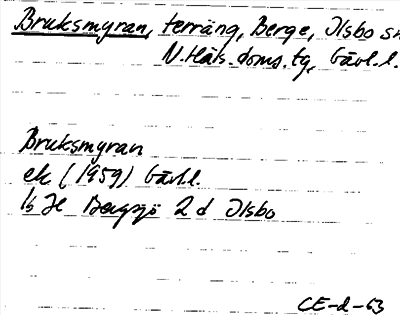 Bruksmyran, terräng, Berge, Ilsbo sn
N. Häls. doms. tg, Gävl. l.
Bruksmyran
ek (1959) Gävl. l.
Bergsjö 2 d Ilsbo
CE-d-63